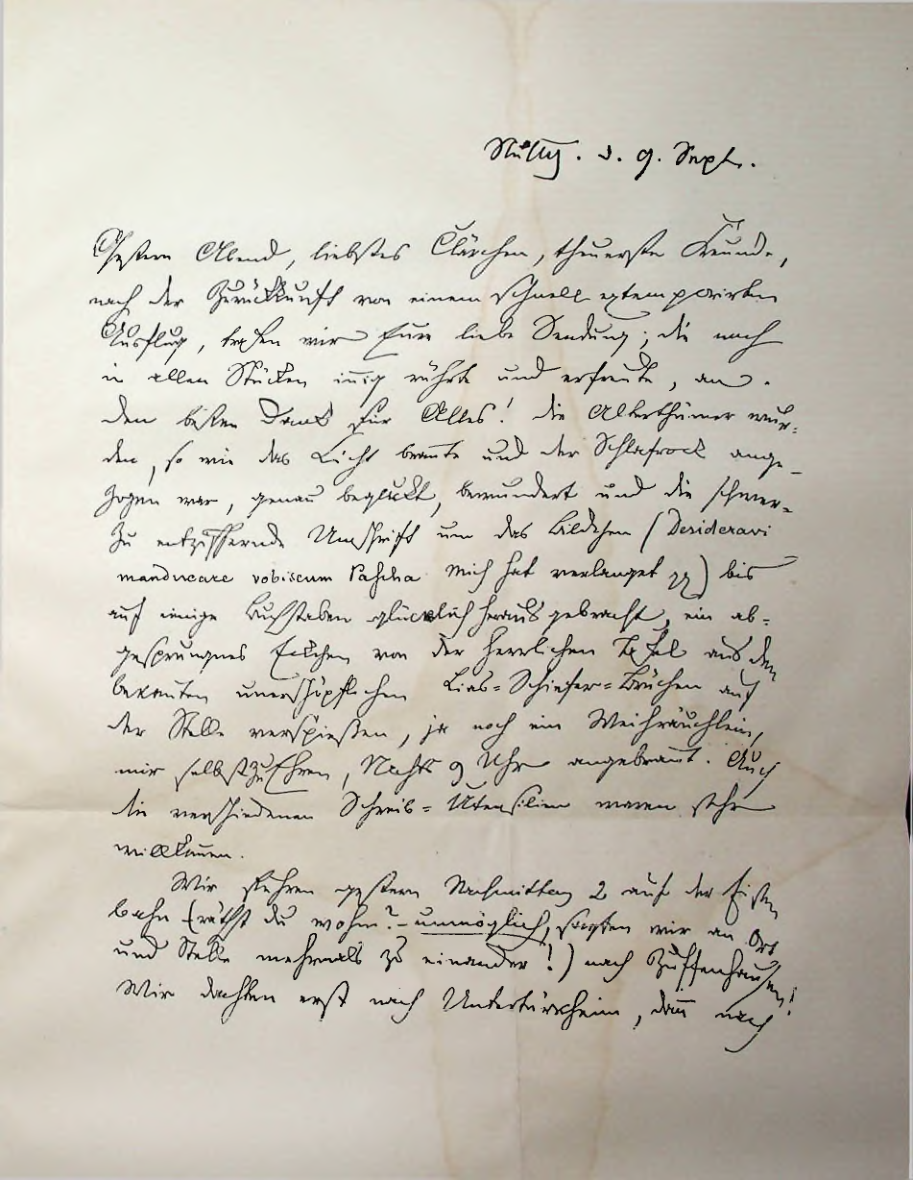 Stuttg. d. 9. Sept.
Gestern Abend, liebstes Clärchen, theuerste Freunde,
nach der Zurückkunft von einem schnell extemporirten
Ausflug, trafen wir Eure liebe Sendung; die noch
in allen Stücken innig rührte und erfreute, an.
Den besten Dank für Alles! Die Alterthümer wur-
den, so wie das Licht brannte und der Schlafrock ange-
zogen war, genau beguckt, bewundert und die schwer-
zu entziffernde Umschrift um das Bildchen (Desideravi
manducare vobiscum Pascha mich hat verlanget pp) bis
auf einige Buchstaben glücklich herausgebracht, ein ab-
gesprungnes Eckchen von der herrlichen Tafel aus den
bekannten unerschöpflichen Lias-Schiefer-Brüchen auf
der Stelle verspießen, ja noch ein Weihräuchlein,
mir selbst zu Ehren, Nachts 9 Uhr angebrannt. Auch
die verschiedenen Schreib-Utensilien waren sehr
willkommen.
Wir fuhren gestern Nachmittag 2 auf der Eisen
bahn (räthst du wohin? - unmöglich, sagten wir an Ort
und Stelle mehrmals zu einander!) nach Zuffenhausen!
Wir dachten erst nach Untertürkheim, dann nach